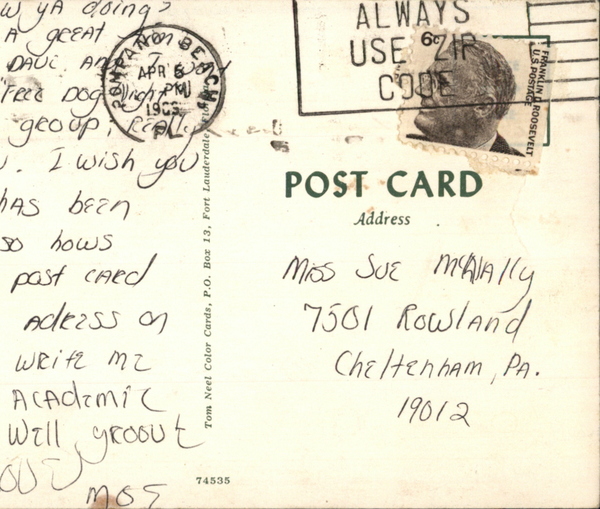 W YA doing?
A GREAT Time
DAVE AND I
Feel Dog
group, Really
. I wish you
has been
so hows
post CARD
Adress on
WRITE ME
ACADEMIC
Well groove
LOVE
MOE
POMPANO BEACH
APR 8
PM
FL
ALWAYS
USE ZIP
CODE
6c
FRANKLIN D. ROOSEVELT
U.S. POSTAGE
Tom Neel Color Cards, P.O. Box 13, Fort Lauderdale
POST CARD
Address
Miss Sue McNally
7501 Rowland
Cheltenham, PA.
19012
74535